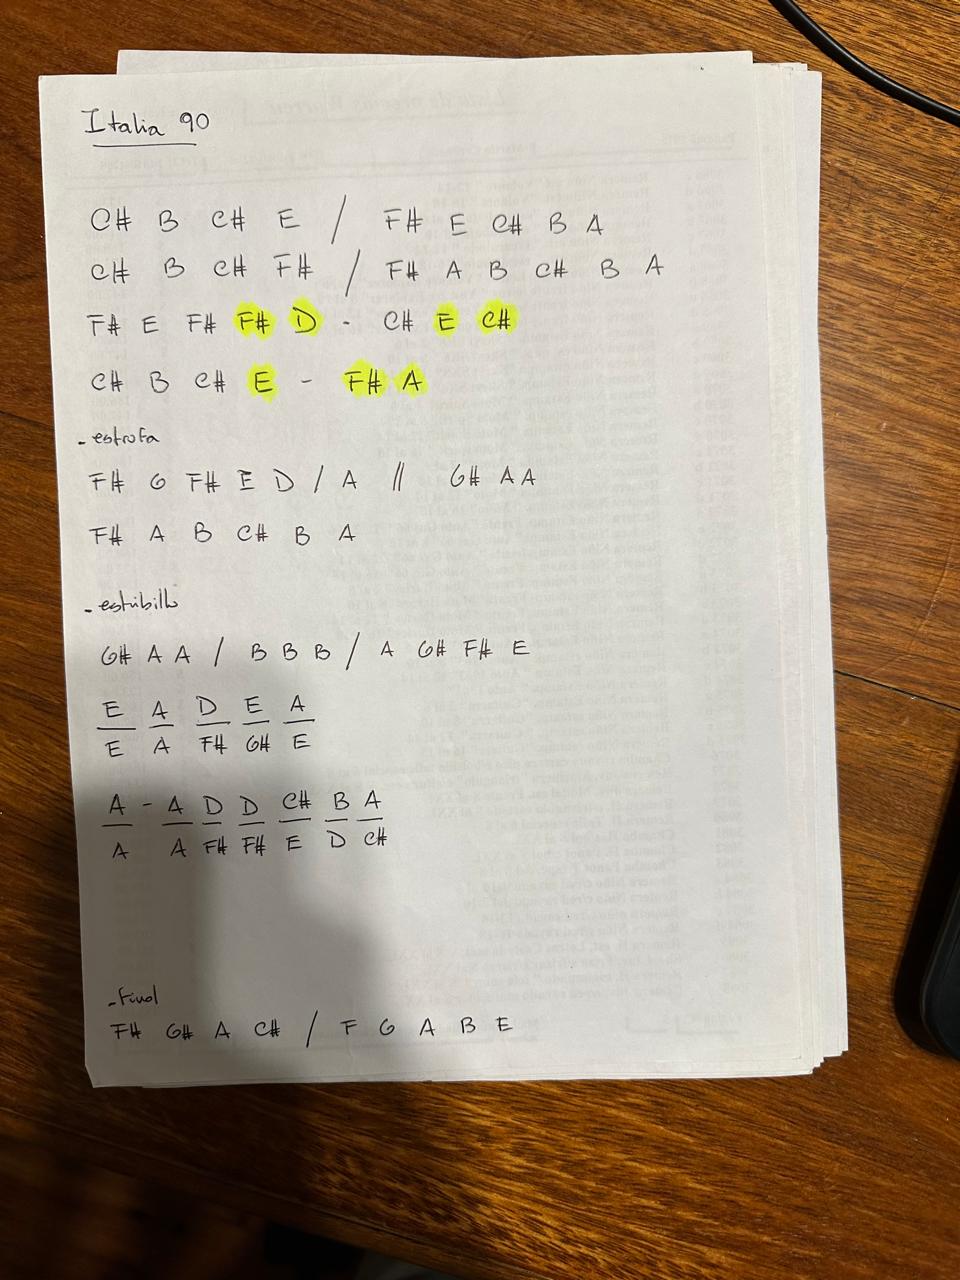 Italia 90
C# B C# E / F# E C# B A
C# B C# F# / F# A B C# B A
F# E F# F# D - C# E C#
C# B C# E - F# A
- estrofa
F# G F# E D / A // G# A A
F# A B C# B A
- estribillo
G# A A / B B B / A G# F# E
E A D E A
E A F# G# E
A - A D D C# B A
A A F# F# E D C#
- final
F# G# A C# / F G A B E